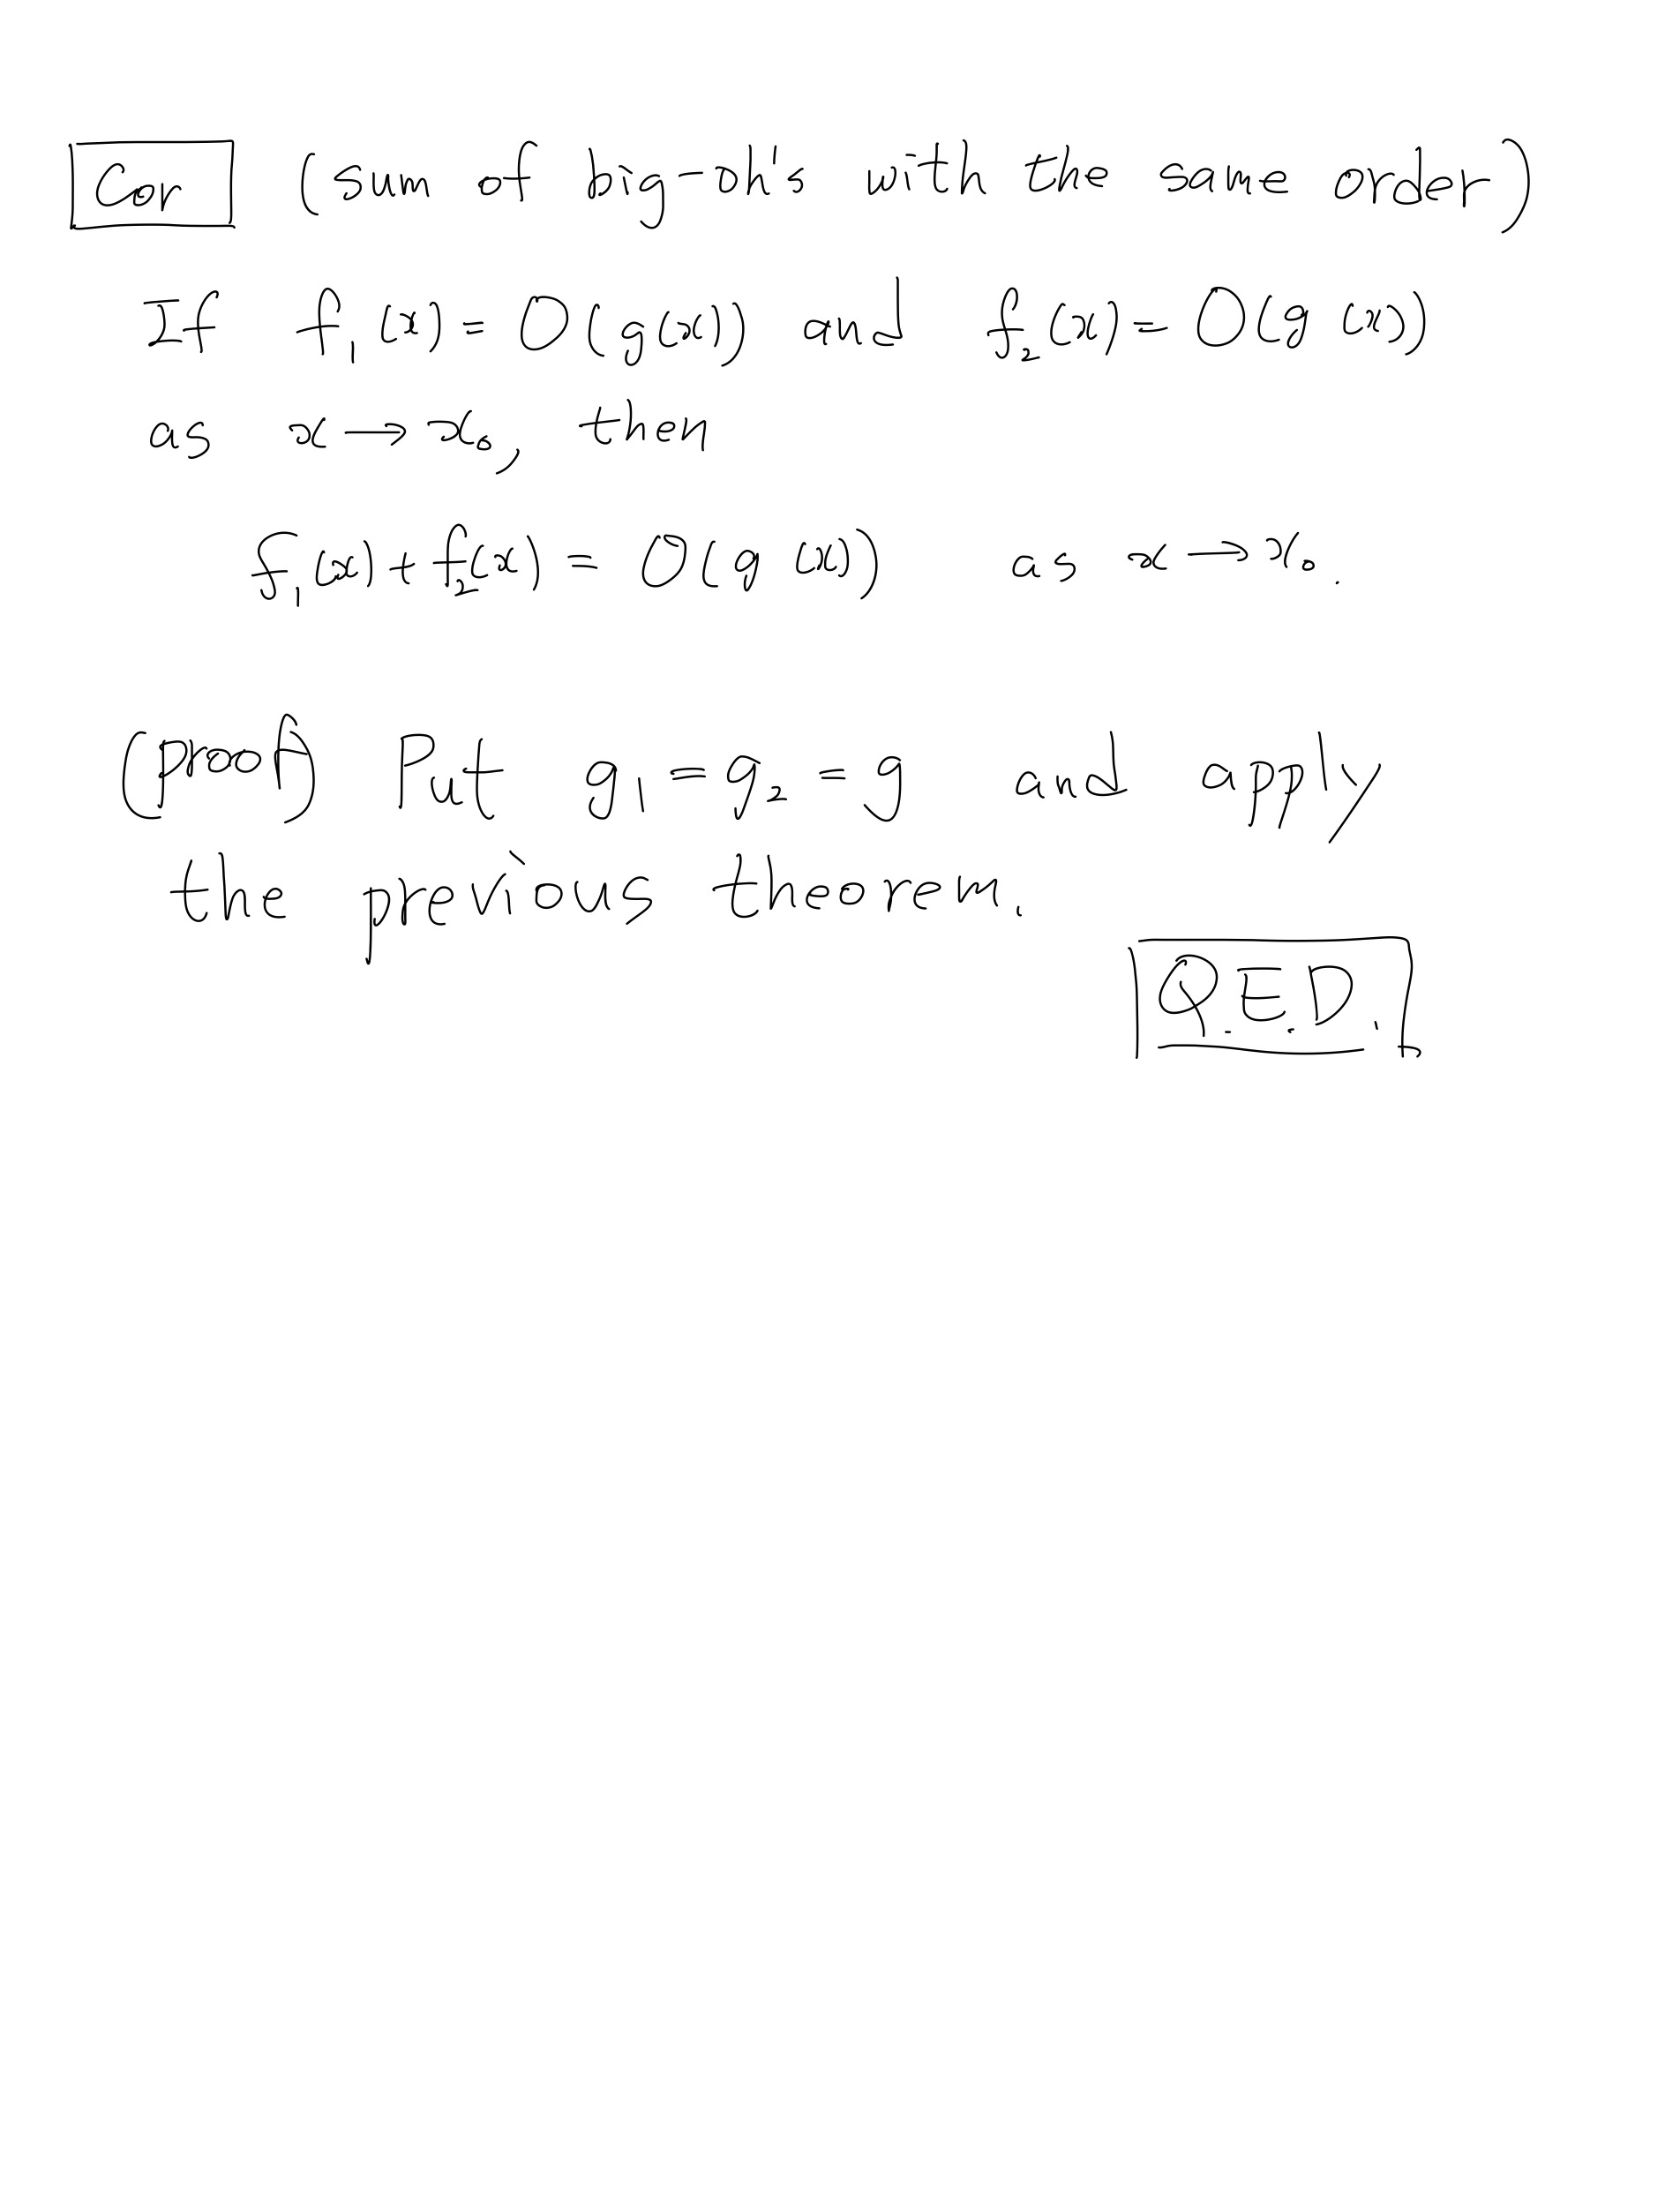 Cor (sum of big-oh's with the same order)
If f₁(x) = O(g(x)) and f₂(x) = O(g(x))
as x → x₀, then
f₁(x) + f₂(x) = O(g(x)) as x → x₀.
(proof) Put g₁ = g₂ = g and apply
the previous theorem.
Q.E.D.